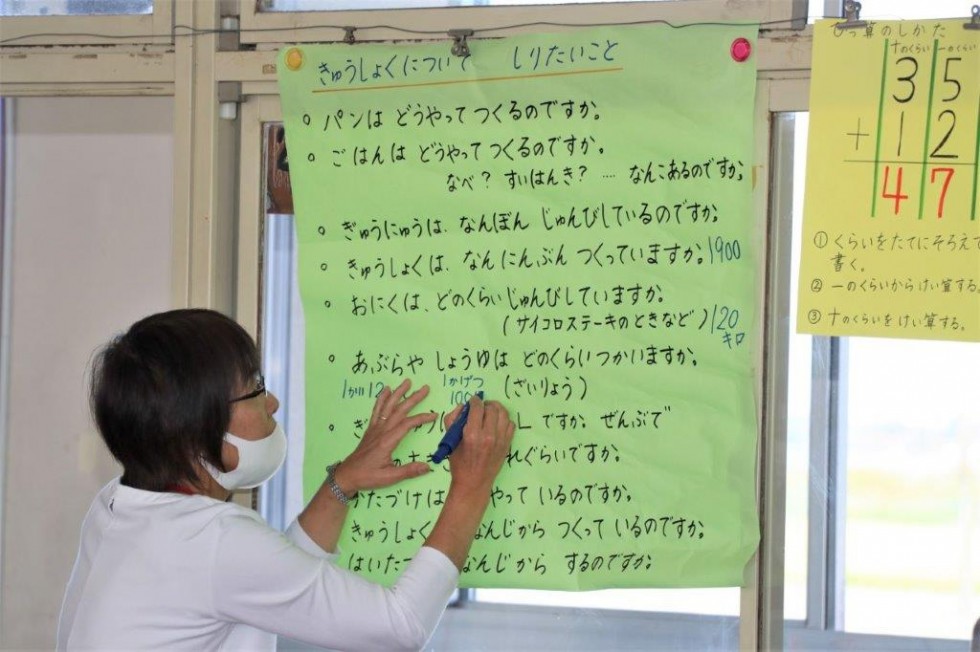 きゅうしょくについて しりたいこと
。パンは どうやって つくるのですか。
。ごはんは どうやって つくるのですか。
なべ? すいはんき? …. なんこあるのですか。
。ぎゅうにゅうは、なんぼん じゅんびしているのですか。
。きゅうしょくは、なんにんぶん つくっていますか。1900
。おにくは、どのくらいじゅんびしていますか。
(サイコロステーキのときなど) 120
キロ
。あぶらや しょうゆは どのくらいつかいますか。
1かげつ (ざいりょう)
100
ですか。ぜんぶで
れぐらいですか。
かたづけは やって いるのですか。
きゅうしょく なんじから つくって いるのですか。
はいた なんじから するのですか。
ひっ算のしかた
十のくらい 一のくらい
35
+12
47
① くらいをたてにそろえて
書く。
② 一のくらいからけい算する。
③ 十のくらいをけい算する。